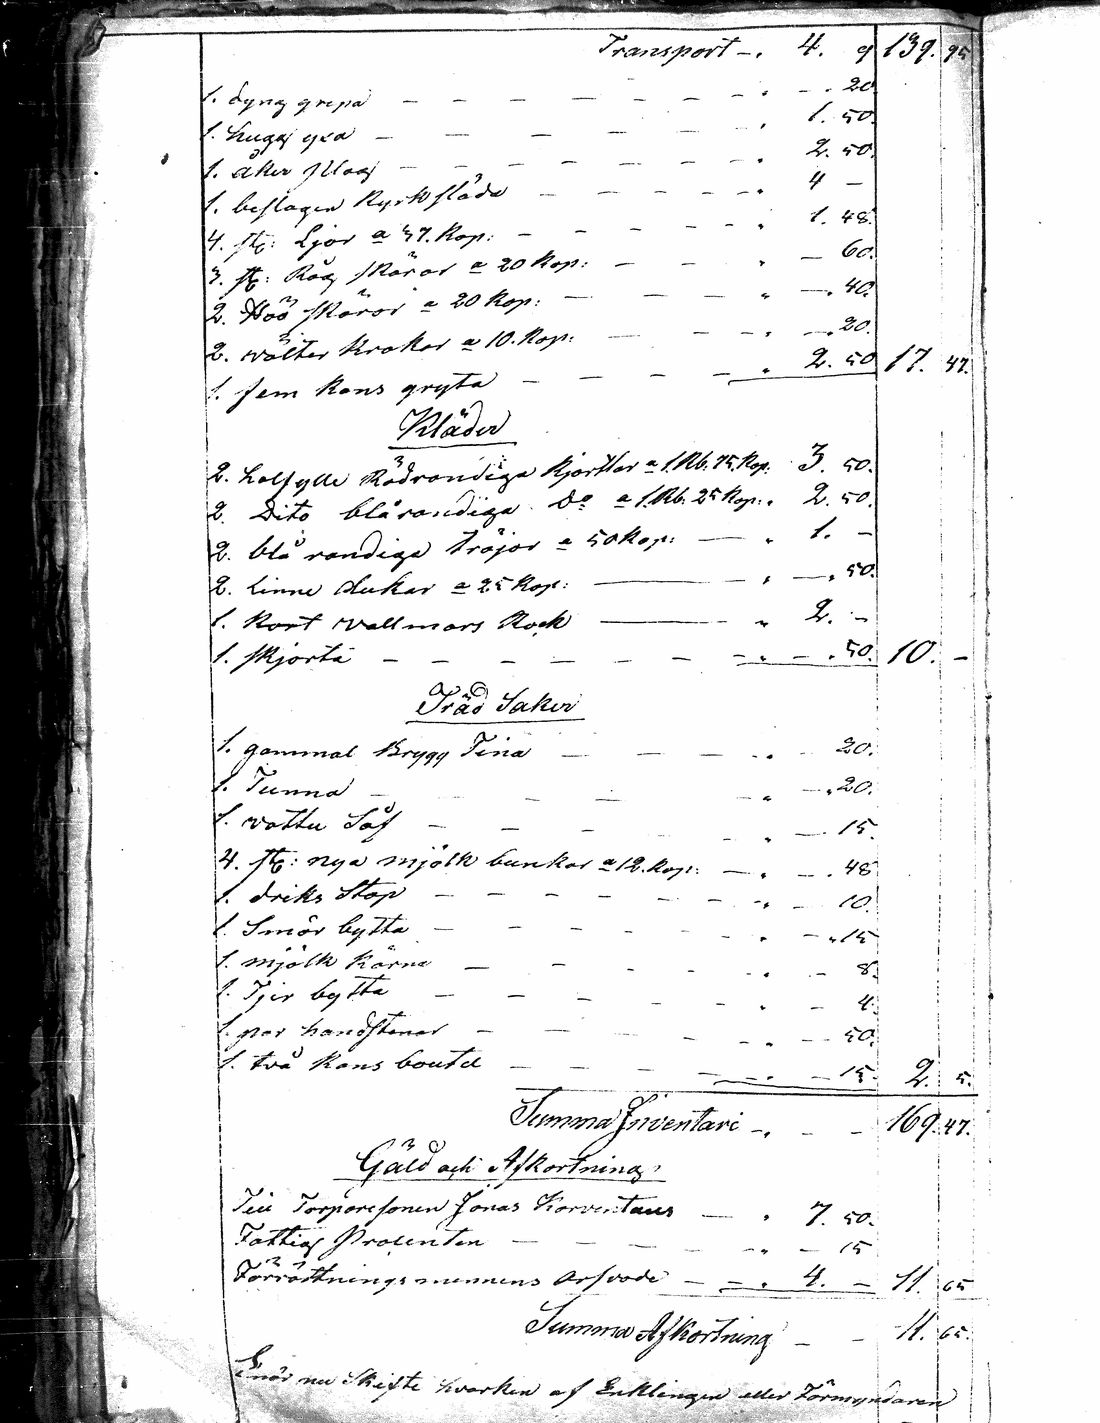 Transport -. 4. 9 139. 95
1. dyng grepa - - - . - . 20
1. hugg yxa - - - . 1. 50.
1. åker plog - - - . 2. 50.
1. beslagen kyrk släda - - - . 4 -
4. st: Ljor a 37. Kop: - - - . 1. 48.
3. st: Råg skäror a 20 Kop: - - . - 60.
2. Höö skäror a 20 Kop: - - . - . 40.
2. wälter krokar a 10. Kop: - - . - . 20.
1. fem kans gryta - - - . 2. 50 17. 47.
Kläder
2. halfylle Rödrandiga kjortlar a 1. Rb. 75. Kop: 3. 50.
2. Dito blårandiga Do a 1. Rb. 25 Kop: . 2. 50.
2. blårandiga tröjor a 50 Kop: - . 1. -
2. Linne dukar a 25 Kop: - . - . 50.
1. kort wallmars Rock - . 2. -
1. skjorta - - - . - . 50. 10. -
Träd Saker
1. gammal Brygg Tina - - - . 20.
1. Tunna - - - . - . 20.
1. vattu Såf - - - . - 15.
4. st: nya mjölk bunkar a 12. Kop: - . - . 48
1. driks Stop - - - . - 10.
1. Smör bytta - - - . - . 15
1. mjölk kärna - - - . - 8.
1. Tjer bytta - - - . - 4.
1. par handstenar - - - . - 50.
1. två kans boutel - - - . - 15. 2. 5.
Summa Inventari -. - - 169. 47.
Gäld och Afkortning.
Till Torparesonen Jonas Korventaus - . 7. 50.
Fattig Procenten - - - . - 15
Förrättningsmennens arfvode - - . 4. - 11. 65
Summa Afkortning - - 11. 65.
Enär nu Skifte hvarken af Enklingen eller Förmyndaren